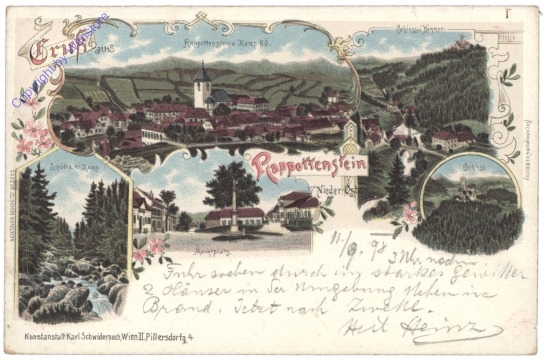 Gruß aus
Rappottenstein a. Kamp N.Ö.
Schloss
Copyright by
Rappottenstein
Nieder-Österr.
Schloss
Schütt a. Kamp
Marktplatz
11/8 98
3 Uhr nachm.
durch ein starkes Gewitter
2 Häuser in der Umgebung stehen in
Brand. Jetzt nach Zwettl.
Heil Heinz
Kunstanstalt Karl Schwidernoch, Wien II, Pillersdorfg. 4.